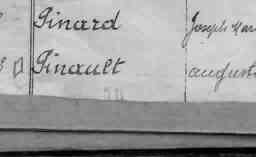 Pinard Joseph Mar
Pinault august